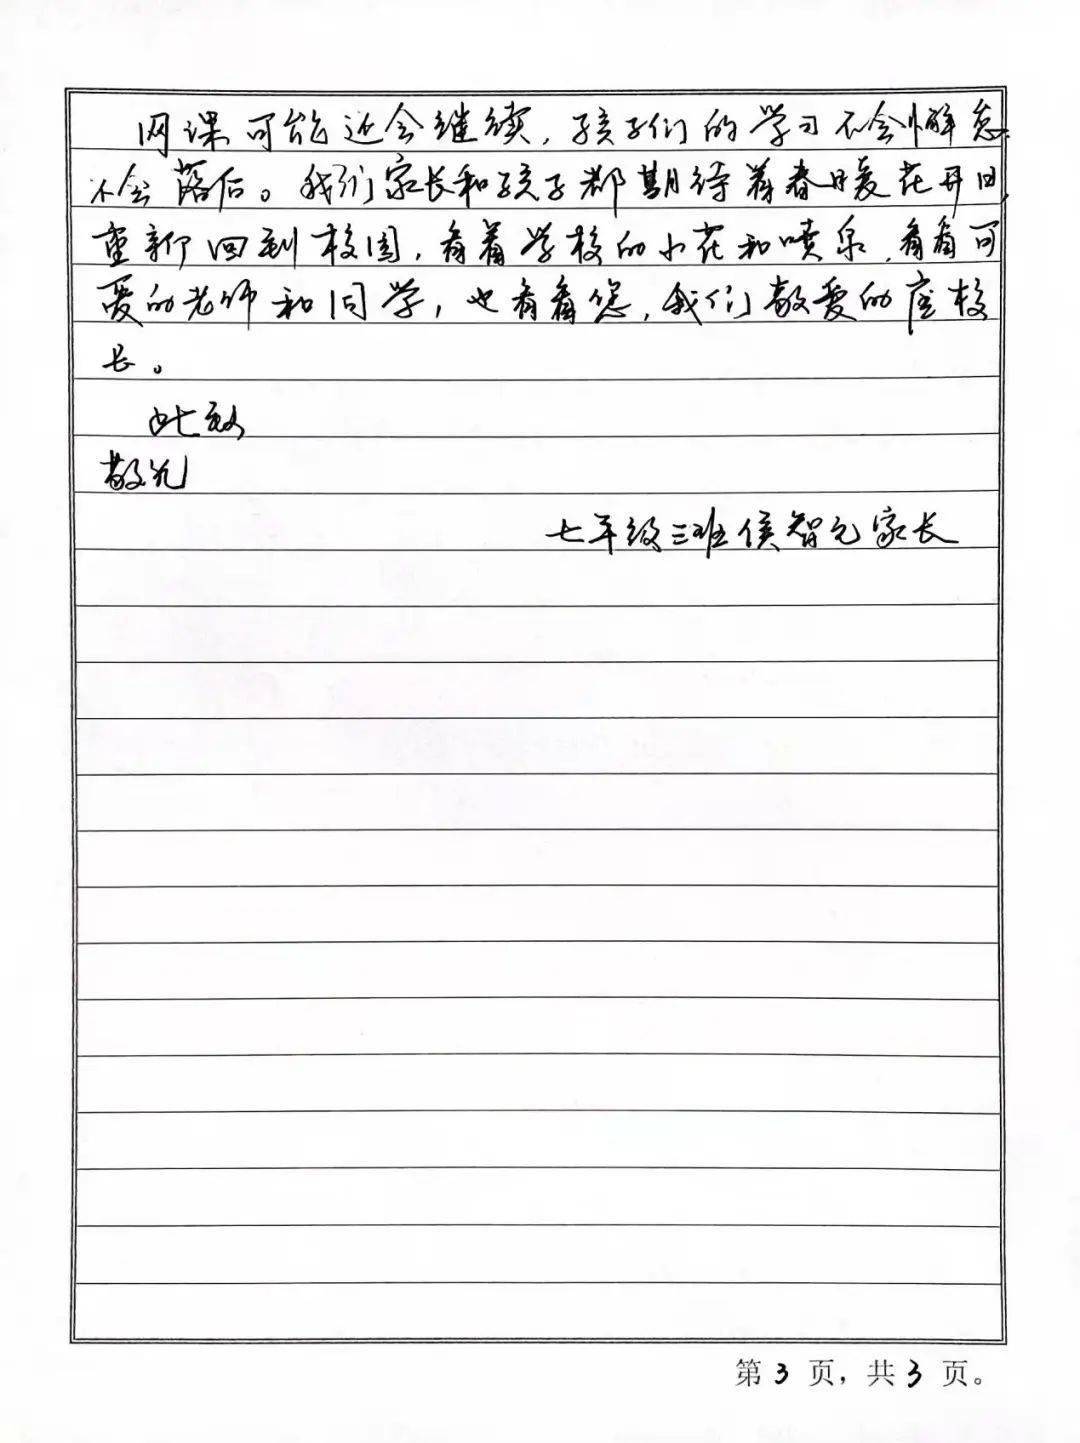 网课可能还会继续，孩子们的学习不会懈怠
不会落后。我们家长和孩子都期待着春暖花开日，
重新回到校园，看看学校的小花和喷泉，看看可
爱的老师和同学，也看看您，我们敬爱的崔校
长。
此致
敬礼
七年级三班侯智元家长
第3页，共3页。